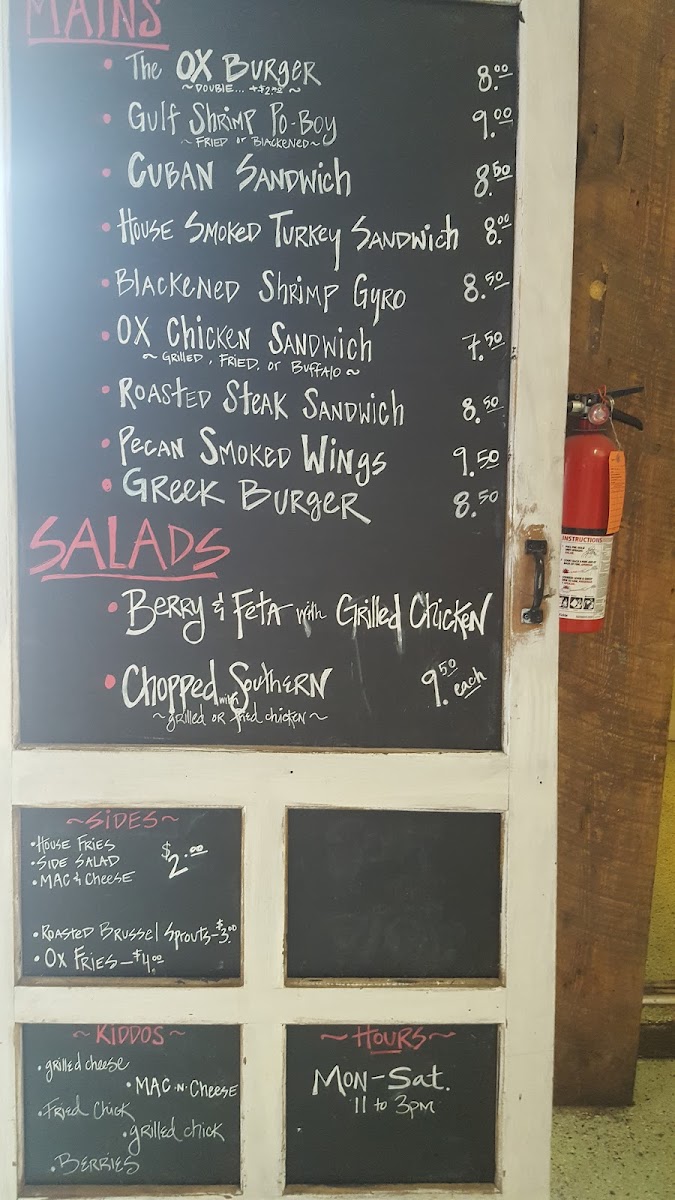 MAINS
• The OX Burger 8.00
~ DOUBLE... +$2.00 ~
• Gulf Shrimp Po-Boy 9.00
~ FRIED or BLACKENED ~
• CUBAN SANDWich 8.50
• House Smoked Turkey SANDWich 8.00
• BlackeneD Shrimp Gyro 8.50
• OX Chicken SANDWich 7.50
~ GRILLED, FRIED, or BUFFALO ~
• ROASTED Steak SANDWich 8.50
• Pecan Smoked Wings 9.50
• Greek Burger 8.50
SALADS
• Berry & Feta with Grilled Chicken
• Chopped Southern 9.50 each
with
~ grilled or fried chicken ~
~ SiDES ~
• House Fries $2.00
• Side Salad
• MAC & Cheese
• Roasted Brussel Sprouts - $3.00
• OX Fries - $4.00
~ KiDDOS ~
• grilled cheese
• MAC·N·Cheese
• Fried Chick
• grilled chick
• BERRIES
~ Hours ~
Mon - Sat.
11 to 3pm
INSTRUCTIONS